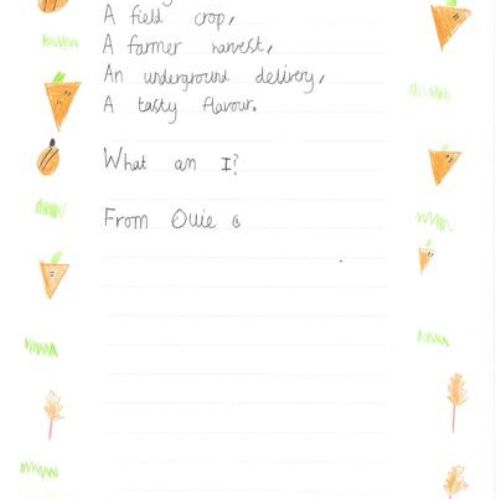 A field crop,
A farmer harvest,
An underground delivery,
A tasty flavour.
What an I?
From Ollie